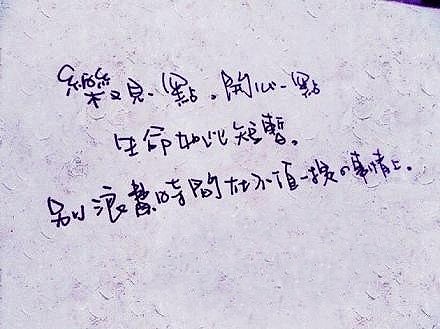 樂观一點。開心一點
生命如此短暫。
別浪費時間在不值一提の事情上。